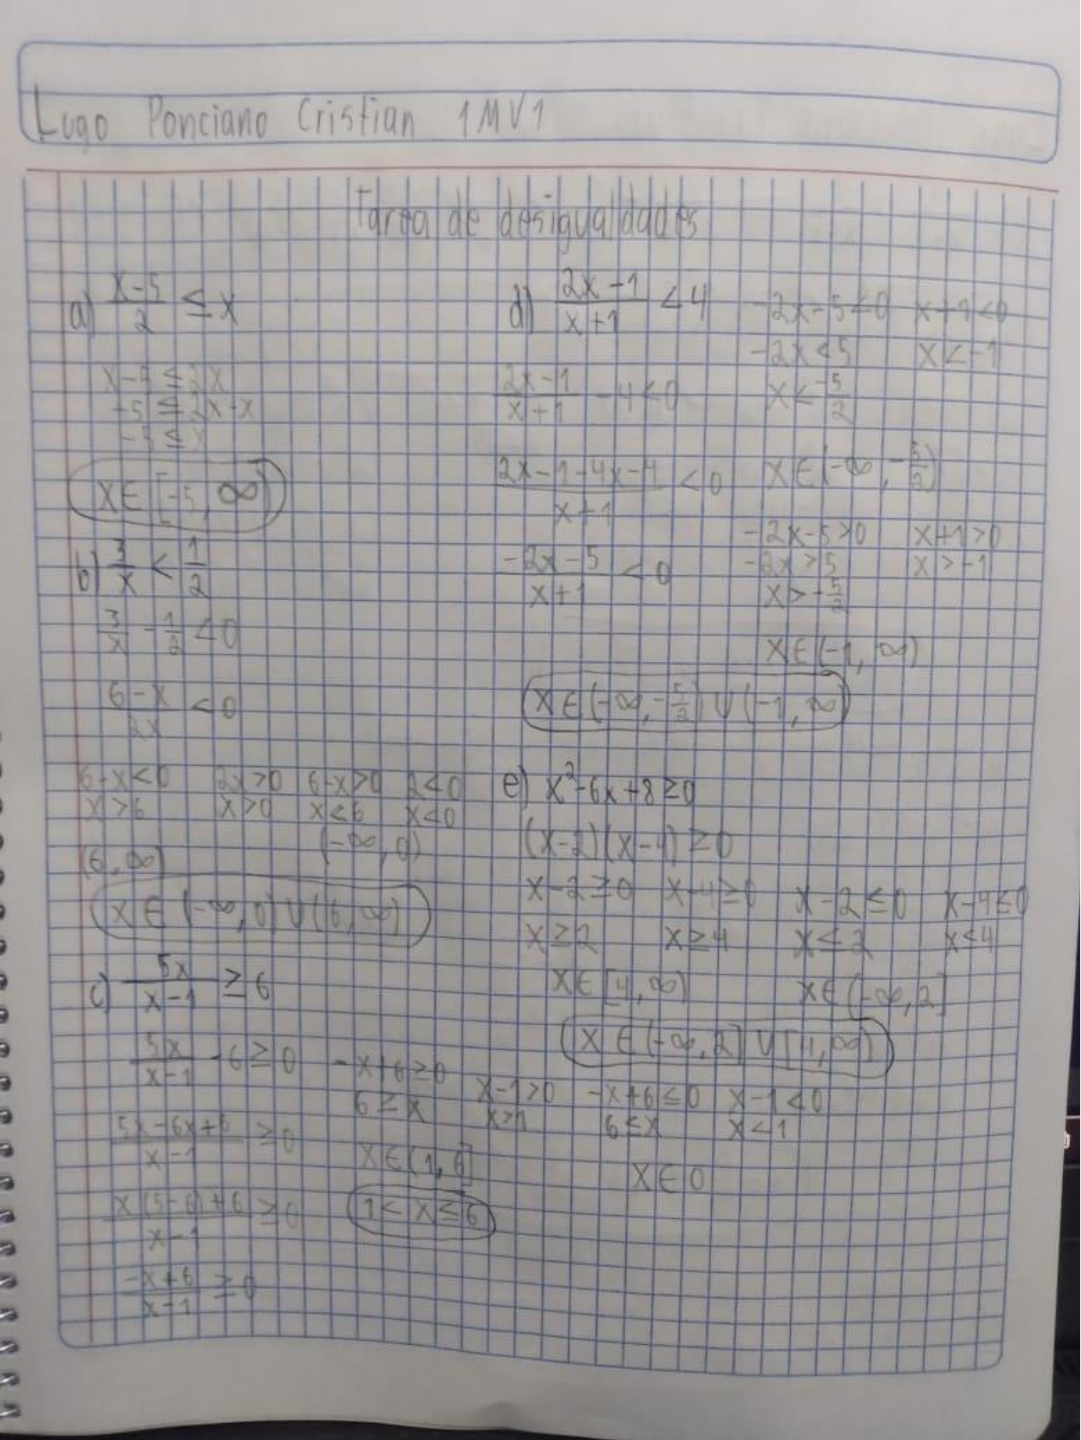 Lugo Ponciano Cristian 1MV1
Tarea de desigualdades
a) x-5/2 ≤ x
x-5 ≤ 2x
-5 ≤ 2x-x
-5 ≤ x
x ∈ [-5, ∞)
b) 3/x < 1/2
3/x - 1/2 < 0
6-x/2x < 0
6-x<0 2x>0 6-x>0 2<0
x>6 x>0 x<6 x<0
(6, ∞) (-∞, 0)
x ∈ (-∞, 0) ∪ (6, ∞)
c) 5x/x-1 ≥ 6
5x/x-1 - 6 ≥ 0
5x-6x+6/x-1 ≥ 0
x(5-6)+6/x-1 ≥ 0
-x+6/x-1 ≥ 0
-x+6≥0 x-1>0 -x+6≤0 x-1<0
6≥x x>1 6≤x x<1
x ∈ (1, 6] x ∈ 0
1 < x ≤ 6
d) 2x-1/x+1 < 4
2x-1/x+1 - 4 < 0
2x-1-4x-4/x+1 < 0
-2x-5/x+1 < 0
-2x-5<0 x+1<0
-2x<5 x<-1
x<-5/2
x ∈ (-∞, -5/2)
-2x-5>0 x+1>0
-2x>5 x>-1
x>-5/2
x ∈ (-1, ∞)
x ∈ (-∞, -5/2) ∪ (-1, ∞)
e) x²-6x+8≥0
(x-2)(x-4) ≥ 0
x-2≥0 x-4≥0 x-2≤0 x-4≤0
x≥2 x≥4 x≤2 x≤4
x ∈ [4, ∞) x ∈ (-∞, 2]
x ∈ (-∞, 2] ∪ [4, ∞)